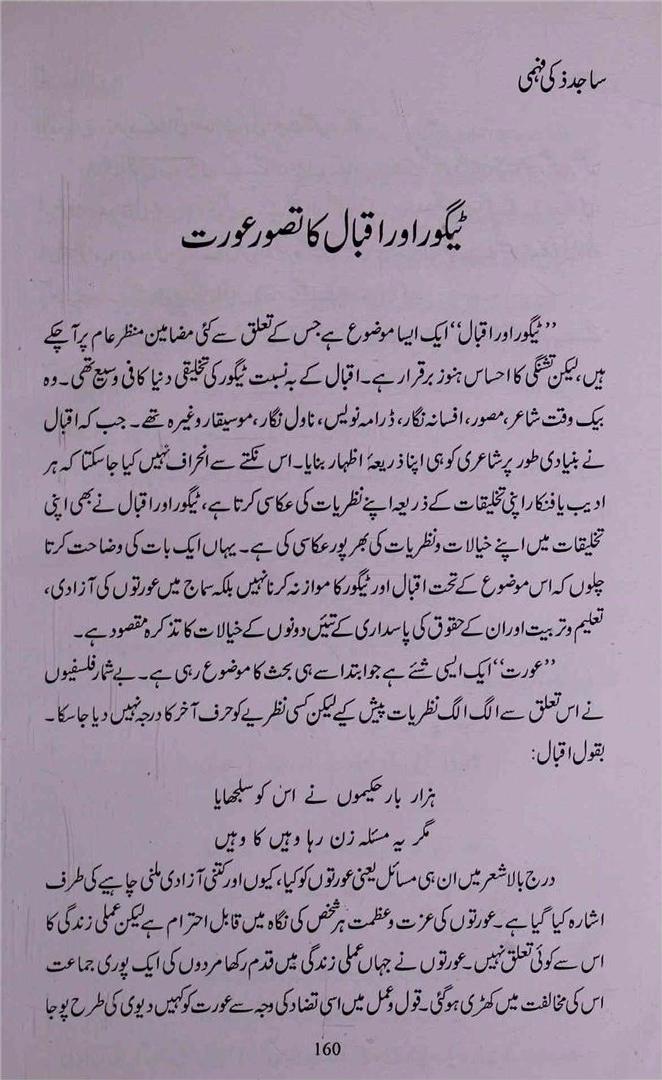 ساجد ذکی فہمی
ٹیگور اور اقبال کا تصور عورت
’’ٹیگور اور اقبال‘‘ ایک ایسا موضوع ہے جس کے تعلق سے کئی مضامین منظر عام پر آ چکے
ہیں، لیکن تشنگی کا احساس ہنوز برقرار ہے۔ اقبال کے بہ نسبت ٹیگور کی تخلیقی دنیا کافی وسیع تھی۔ وہ
بیک وقت شاعر، مصور، افسانہ نگار، ڈرامہ نویس، ناول نگار، موسیقار وغیرہ تھے۔ جب کہ اقبال
نے بنیادی طور پر شاعری کو ہی اپنا ذریعۂ اظہار بنایا۔ اس نکتے سے انحراف نہیں کیا جاسکتا کہ ہر
ادیب یا فنکار اپنی تخلیقات کے ذریعہ اپنے نظریات کی عکاسی کرتا ہے، ٹیگور اور اقبال نے بھی اپنی
تخلیقات میں اپنے خیالات و نظریات کی بھرپور عکاسی کی ہے۔ یہاں ایک بات کی وضاحت کرتا
چلوں کہ اس موضوع کے تحت اقبال اور ٹیگور کا موازنہ کرنا نہیں بلکہ سماج میں عورتوں کی آزادی،
تعلیم و تربیت اور ان کے حقوق کی پاسداری کے تئیں دونوں کے خیالات کا تذکرہ مقصود ہے۔
’’عورت‘‘ ایک ایسی شئے ہے جو ابتدا سے ہی بحث کا موضوع رہی ہے۔ بے شمار فلسفیوں
نے اس تعلق سے الگ الگ نظریات پیش کیے لیکن کسی نظریے کو حرف آخر کا درجہ نہیں دیا جاسکا۔
بقول اقبال:
ہزار بار حکیموں نے اس کو سلجھایا
مگر یہ مسئلہ زن رہا وہیں کا وہیں
درج بالا شعر میں ان ہی مسائل یعنی عورتوں کو کیا، کیوں اور کتنی آزادی ملنی چاہیے کی طرف
اشارہ کیا گیا ہے۔ عورتوں کی عزت و عظمت ہر شخص کی نگاہ میں قابل احترام ہے لیکن عملی زندگی کا
اس سے کوئی تعلق نہیں۔ عورتوں نے جہاں عملی زندگی میں قدم رکھا مردوں کی ایک پوری جماعت
اس کی مخالفت میں کھڑی ہوگئی۔ قول و عمل میں اسی تضاد کی وجہ سے عورت کو کہیں دیوی کی طرح پوجا
160